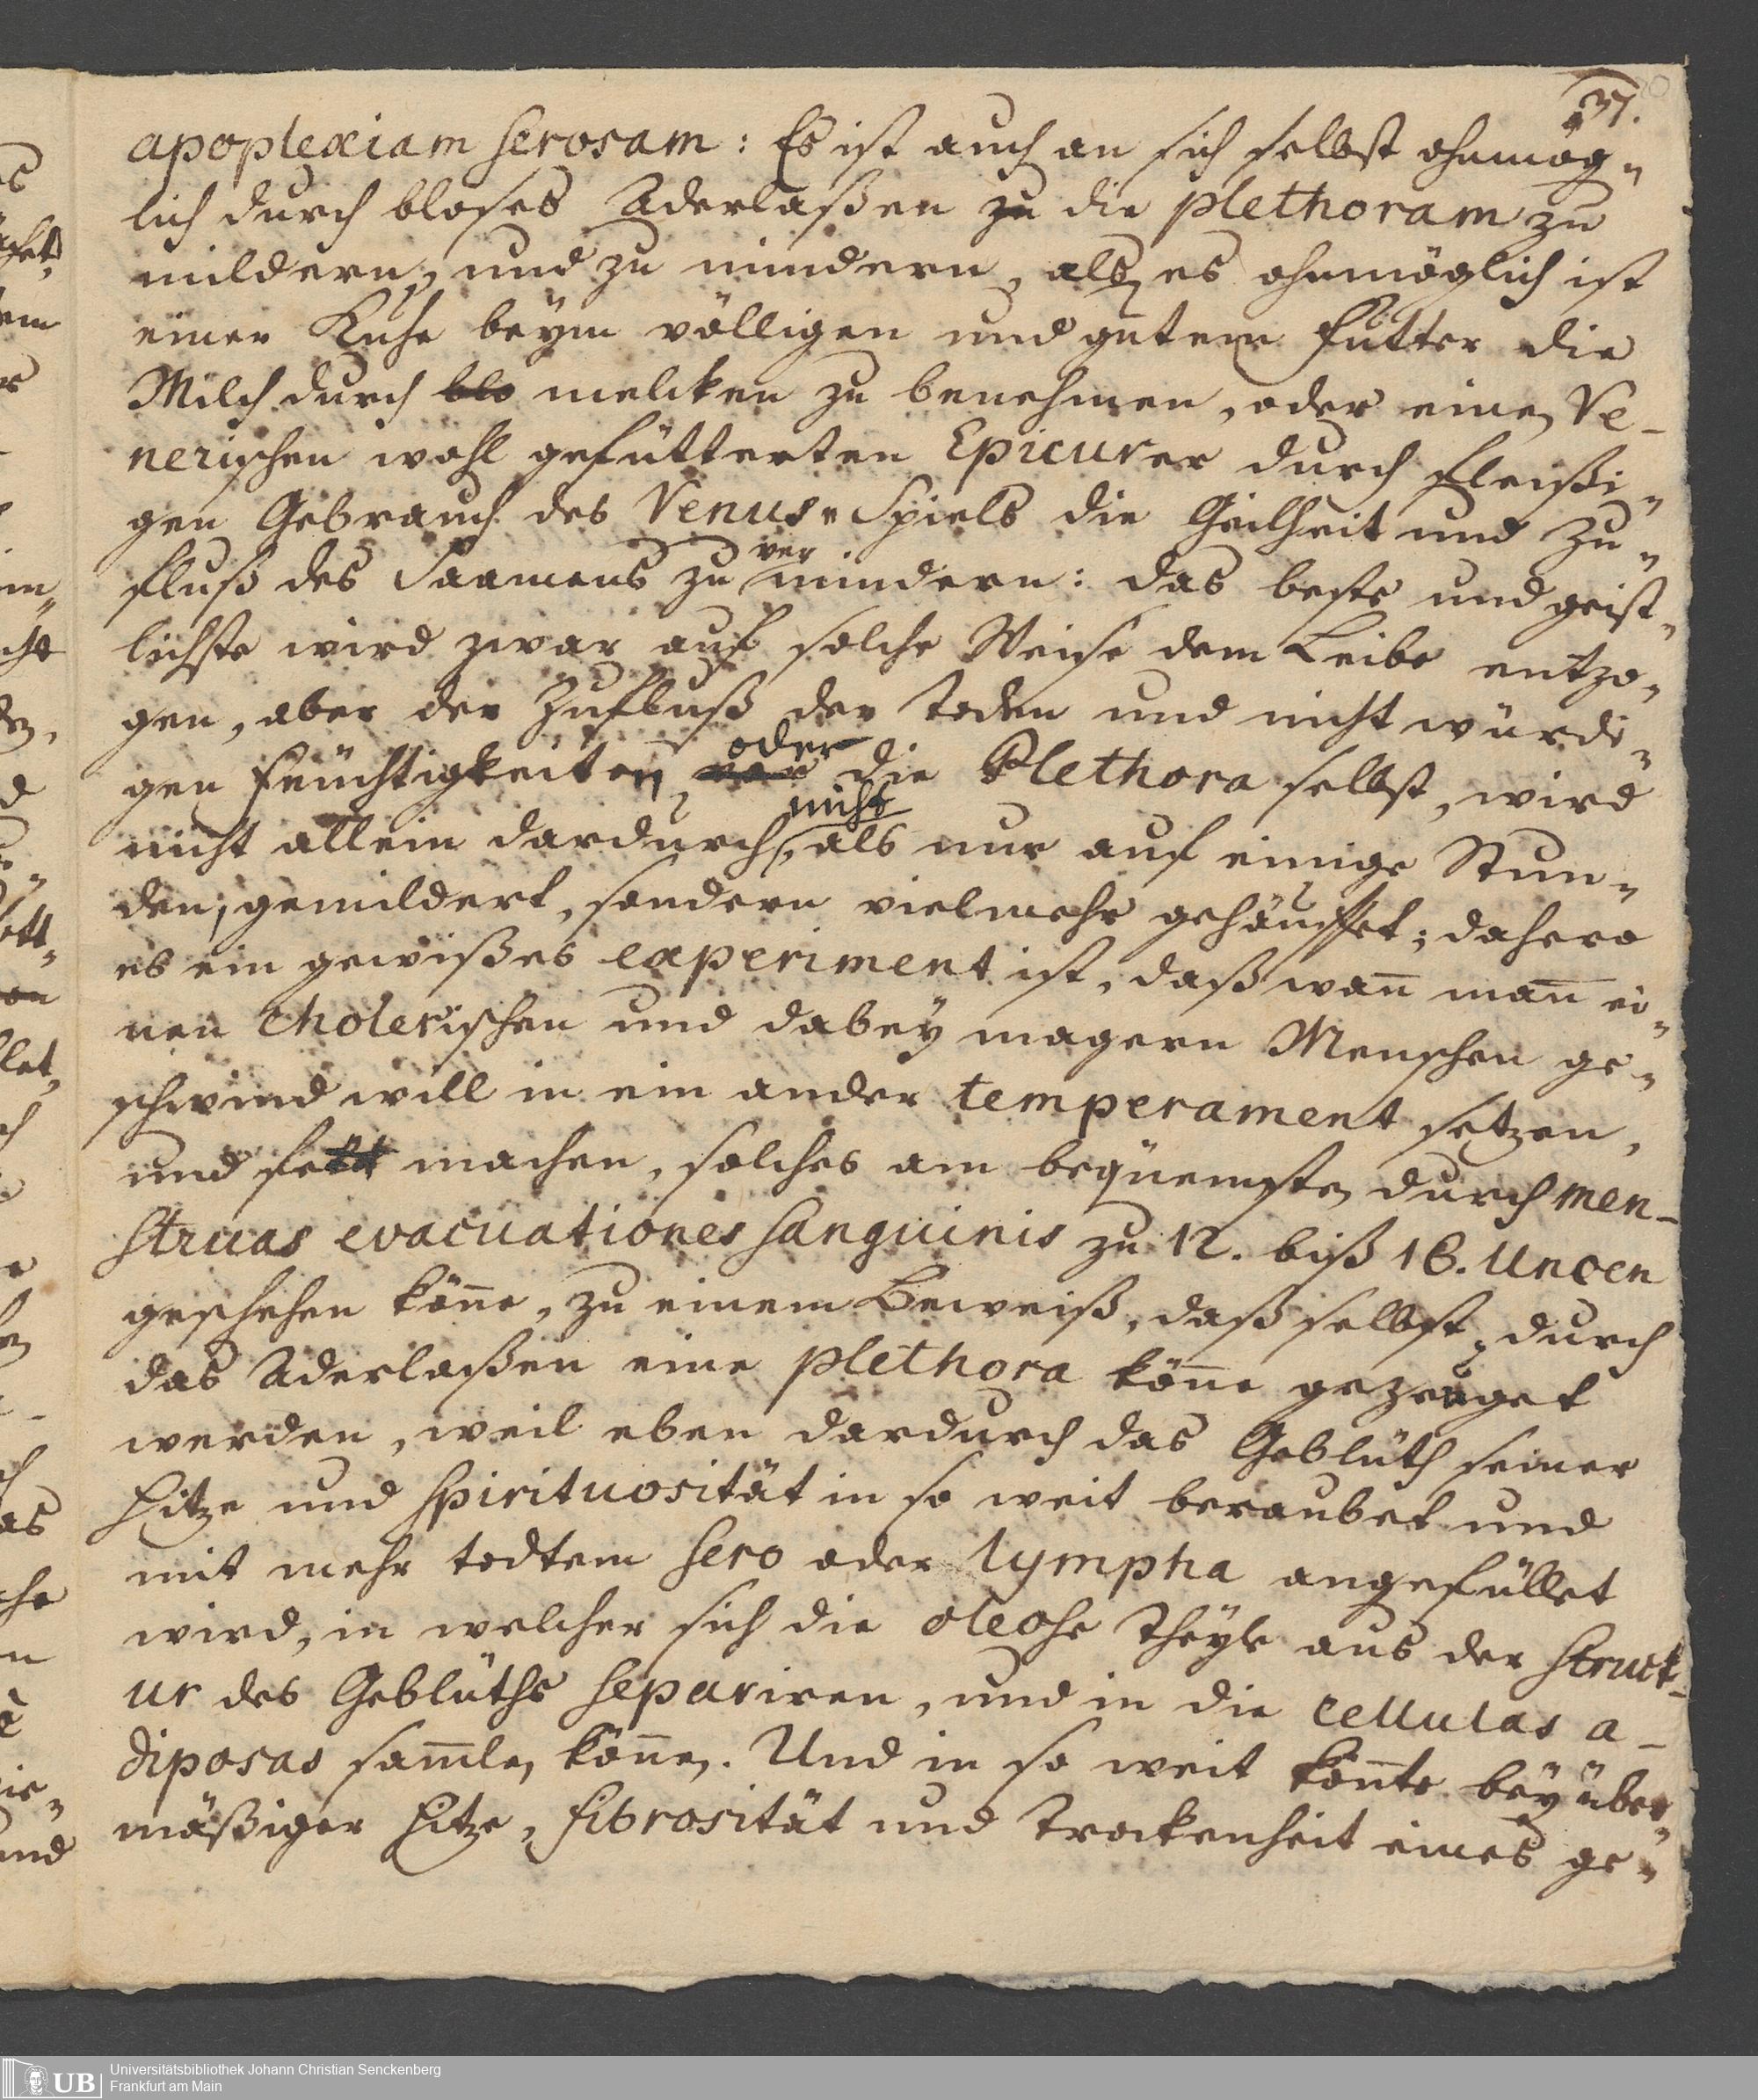 37.
apoplexiam serosam: Es ist auch an sich selbst ohnmög„
lich durch bloses Aderlaßen zu die plethoram zu
mildern, und zu mindern, als es ohnmöglich ist
einer Kuhe beym völligen und gutem Futter die
Milch durch blo melcken zu benehmen, oder einen Ve-
nerischen wohl gefütterten Epicurer durch fleißi„
gen Gebrauch des Venus„Spiels die Geilheit und Zu„
fluß des Saamens zu vermindern: das beste und geist„
lichste wird zwar auf solche Weise dem Leibe entzo„
gen, aber der Zufluß der toden und nicht würdi„
gen Feuchtigkeiten, oder die Plethora selbst, wird
nicht allein dardurch, nicht als nur auf einige Stun„
den, gemildert, sondern vielmehr gehäuffet; dahero
es ein gewißes experiment ist, daß wan̅ man̅ ei„
nen cholerischen und dabey magern Menschen ge„
schwind will in ein ander temperament setzen,
und fett machen, solches am bequemsten durch men-
struas evacuationes sanguinis zu 12. biß 16. Uncen
geschehen kön̅e, zu einem Beweiß, daß selbst durch
das Aderlaßen eine plethora kön̅e gezeuget
werden, weil eben dardurch das Geblüth seiner
Hitze und Spirituosität in so weit beraubet und
mit mehr todtem sero oder lympha angefüllet
wird, in welcher sich die oleose Theyle aus der struct-
ur des Geblüths separiren, und in die cellulas a-
diposas sam̅len kön̅en. Und in so weit kön̅te bey über„
mäßiger Hitze, fibrosität und Trockenheit eines ge„
UB
Universitätsbibliothek Johann Christian Senckenberg
Frankfurt am Main